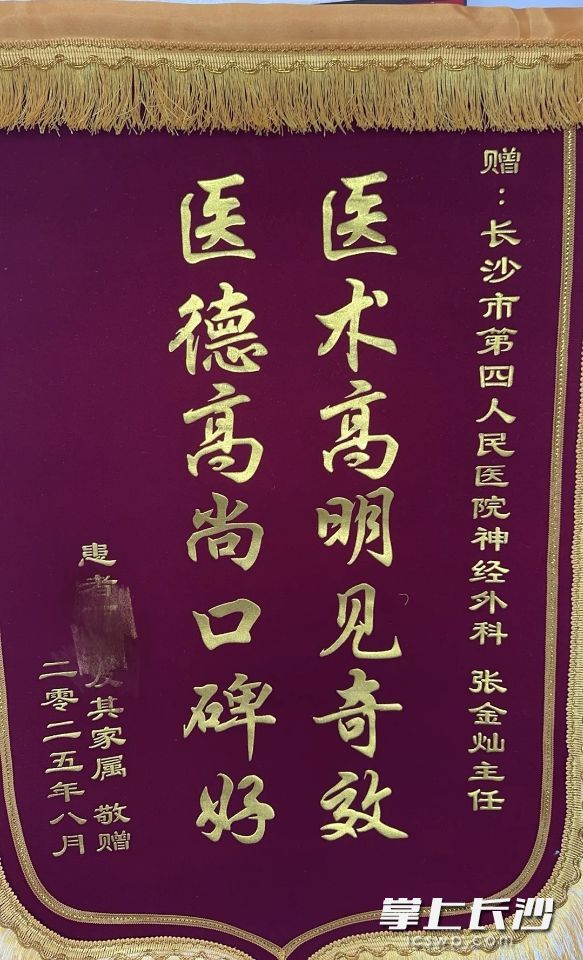 赠：长沙市第四人民医院神经外科 张金灿主任
医术高明见奇效
医德高尚口碑好
患者
及其家属 敬赠
二零二五年八月
掌上长沙
icswb.com